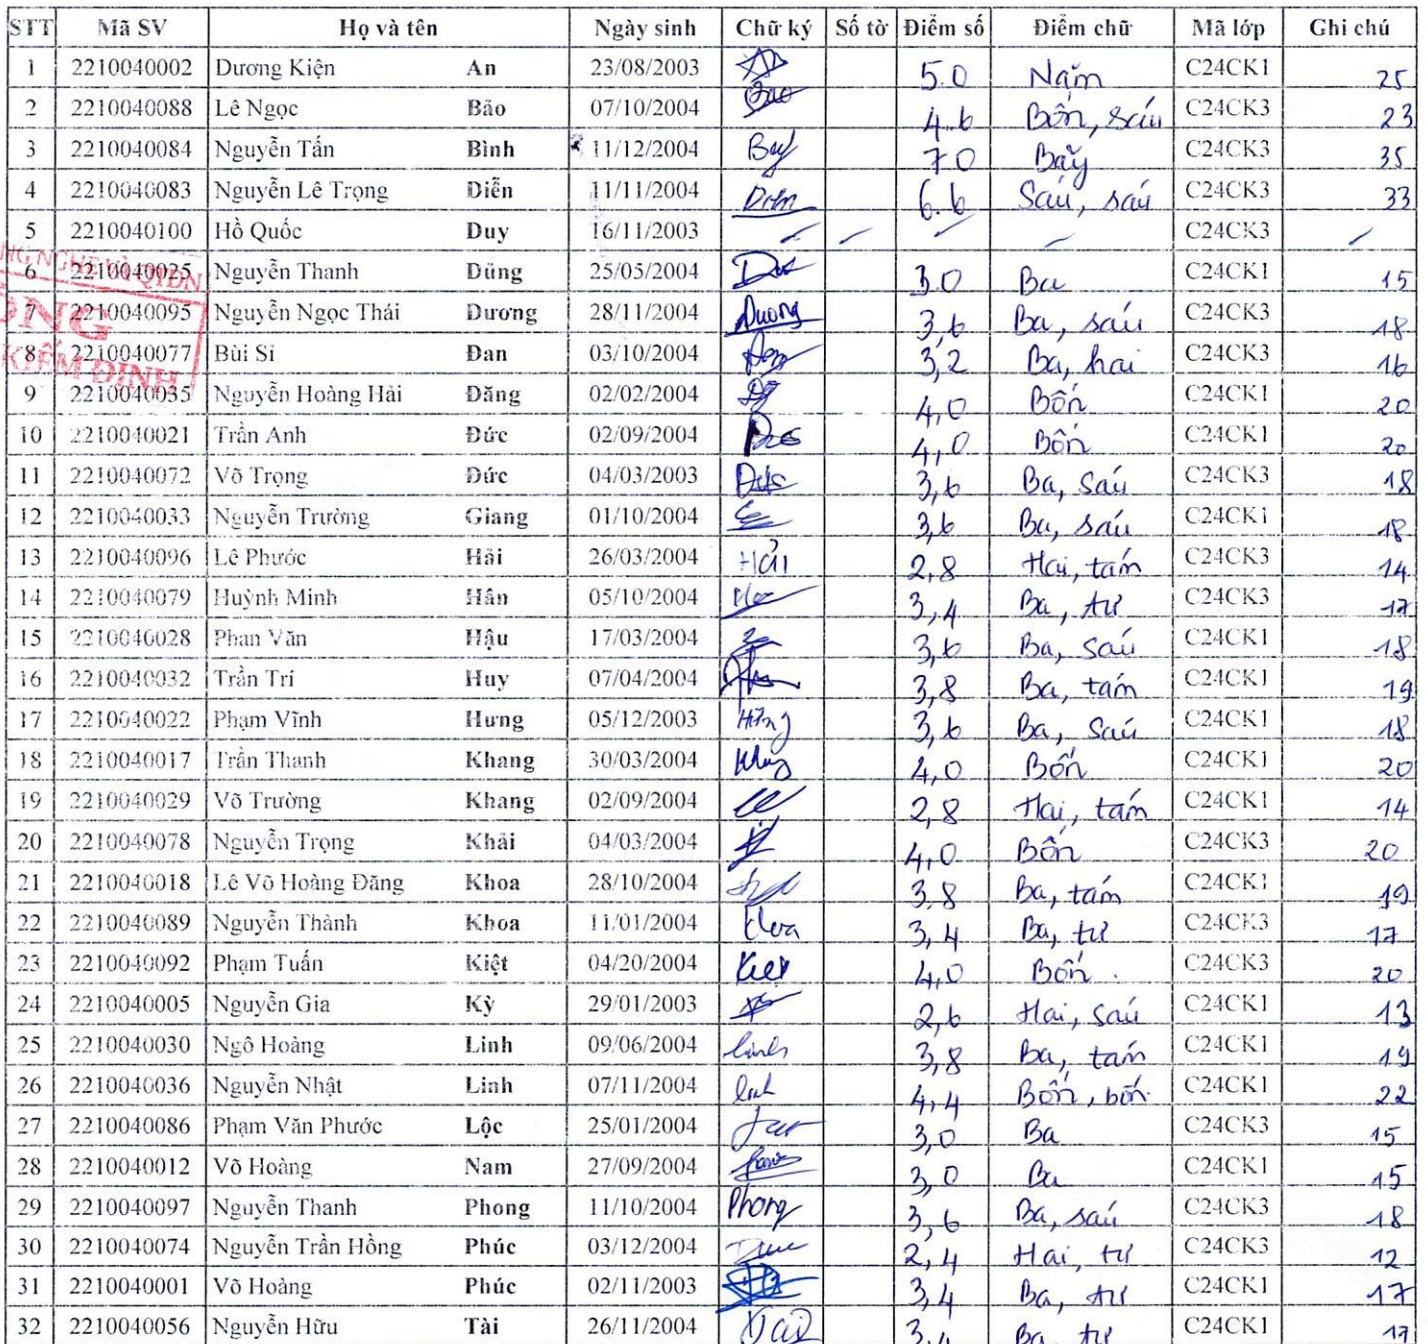 STT Mã SV Họ và tên Ngày sinh Chữ ký Số tờ Điểm số Điểm chữ Mã lớp Ghi chú
1 2210040002 Dương Kiện An 23/08/2003 5.0 Năm C24CK1 25
2 2210040088 Lê Ngọc Bảo 07/10/2004 Bao 4.6 Bốn, sáu C24CK3 23
3 2210040084 Nguyễn Tấn Bình 11/12/2004 7.0 Bảy C24CK3 35
4 2210040083 Nguyễn Lê Trọng Diễn 11/11/2004 6.6 Sáu, sáu C24CK3 33
5 2210040100 Hồ Quốc Duy 16/11/2003 C24CK3
6 2210040025 Nguyễn Thanh Dũng 25/05/2004 3.0 Ba C24CK1 15
7 2210040095 Nguyễn Ngọc Thái Dương 28/11/2004 Duong 3,6 Ba, sáu C24CK3 18
8 2210040077 Bùi Sĩ Đan 03/10/2004 3,2 Ba, hai C24CK3 16
KIỂM ĐỊNH
9 2210040035 Nguyễn Hoàng Hải Đăng 02/02/2004 4,0 Bốn C24CK1 20
10 2210040021 Trần Anh Đức 02/09/2004 4,0 Bốn C24CK1 20
11 2210040072 Võ Trọng Đức 04/03/2003 Đức 3,6 Ba, Sáu C24CK3 18
12 2210040033 Nguyễn Trường Giang 01/10/2004 3,6 Ba, sáu C24CK1 18
13 2210040096 Lê Phước Hải 26/03/2004 Hải 2,8 Hai, tám C24CK3 14
14 2210040079 Huỳnh Minh Hân 05/10/2004 3,4 Ba, tư C24CK3 17
15 2210040028 Phan Văn Hậu 17/03/2004 3,6 Ba, sáu C24CK1 18
16 2210040032 Trần Trí Huy 07/04/2004 3,8 Ba, tám C24CK1 19
17 2210040022 Phạm Vĩnh Hưng 05/12/2003 Hưng 3,6 Ba, Sáu C24CK1 18
18 2210040017 Trần Thanh Khang 30/03/2004 4,0 Bốn C24CK1 20
19 2210040029 Võ Trường Khang 02/09/2004 2,8 Hai, tám C24CK1 14
20 2210040078 Nguyễn Trọng Khải 04/03/2004 4,0 Bốn C24CK3 20
21 2210040018 Lê Võ Hoàng Đăng Khoa 28/10/2004 3.8 Ba, tám C24CK1 19
22 2210040089 Nguyễn Thành Khoa 11/01/2004 Khoa 3,4 Ba, tư C24CK3 17
23 2210040092 Phạm Tuấn Kiệt 04/20/2004 Kiệt 4,0 Bốn C24CK3 20
24 2210040005 Nguyễn Gia Kỳ 29/01/2003 2,6 Hai, Sáu C24CK1 13
25 2210040030 Ngô Hoàng Linh 09/06/2004 Linh 3,8 Ba, tám C24CK1 19
26 2210040036 Nguyễn Nhật Linh 07/11/2004 Linh 4,4 Bốn, bốn C24CK1 22
27 2210040086 Phạm Văn Phước Lộc 25/01/2004 3,0 Ba C24CK3 15
28 2210040012 Võ Hoàng Nam 27/09/2004 3,0 Ba C24CK1 15
29 2210040097 Nguyễn Thanh Phong 11/10/2004 Phong 3,6 Ba, sáu C24CK3 18
30 2210040074 Nguyễn Trần Hồng Phúc 03/12/2004 2,4 Hai, tư C24CK3 12
31 2210040001 Võ Hoàng Phúc 02/11/2003 3,4 Ba, tư C24CK1 17
32 2210040056 Nguyễn Hữu Tài 26/11/2004 3,4 Ba, tư C24CK1 17